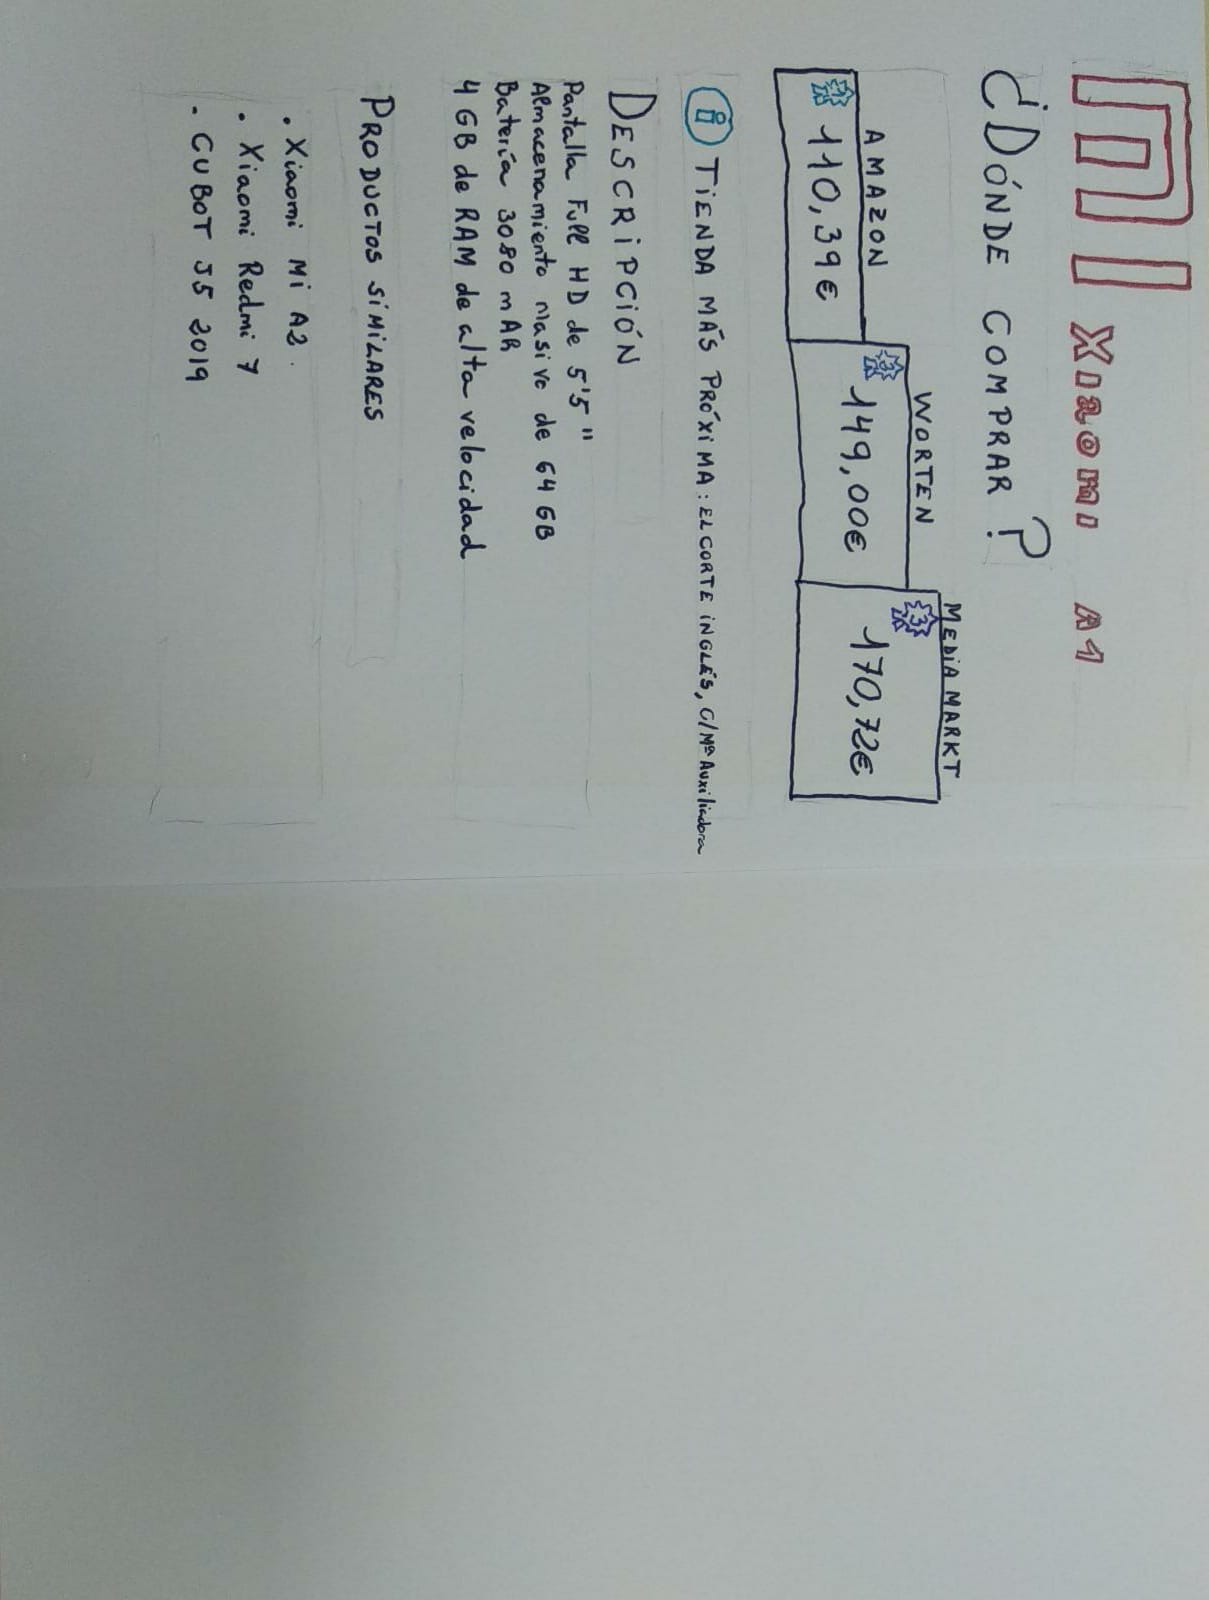 MI Xiaomi A1
¿DÓNDE COMPRAR?
AMAZON
1 110,39€
WORTEN
2 149,00€
MEDIAMARKT
3 170,72€
i TiENDA MÁS PRÓXiMA: EL CORTE iNGLÉS, C/Mª Auxiliadora
DESCRiPCiÓN
Pantalla Full HD de 5'5"
Almacenamiento masivo de 64 GB
Batería 3080 mAR
4 GB de RAM de alta velocidad
PRODUCTOS SiMiLARES
. Xiaomi Mi A2.
. Xiaomi Redmi 7
. CUBOT J5 2019